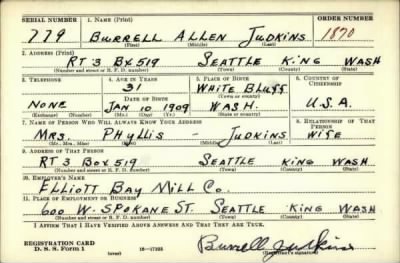 SERIAL NUMBER 1. NAME (Print) ORDER NUMBER
779 BURRELL ALLEN JUDKINS 1870
(First) (Middle) (Last)
2. ADDRESS (Print)
RT 3 BX 519 SEATTLE KING WASH
(Number and street or R. F. D. number) (Town) (County) (State)
3. TELEPHONE 4. AGE IN YEARS 5. PLACE OF BIRTH 6. COUNTRY OF CITIZENSHIP
31 WHITE BLUFF
DATE OF BIRTH (Town or county)
NONE JAN 10 1909 WASH. U.S.A.
(Exchange) (Number) (Mo.) (Day) (Yr.) (State or country)
7. NAME OF PERSON WHO WILL ALWAYS KNOW YOUR ADDRESS 8. RELATIONSHIP OF THAT PERSON
MRS. PHYLLIS - JUDKINS WIFE
(Mr., Mrs., Miss) (First) (Middle) (Last)
9. ADDRESS OF THAT PERSON
RT 3 BOX 519 SEATTLE KING WASH
(Number and street or R. F. D. number) (Town) (County) (State)
10. EMPLOYER'S NAME
ELLIOTT BAY MILL CO.
11. PLACE OF EMPLOYMENT OR BUSINESS
600 W. SPOKANE ST. SEATTLE KING WASH
(Number and street or R. F. D. number) (Town) (County) (State)
I AFFIRM THAT I HAVE VERIFIED ABOVE ANSWERS AND THAT THEY ARE TRUE.
REGISTRATION CARD
D. S. S. Form 1 16-17105 Burrell Judkins
(Registrant's signature)